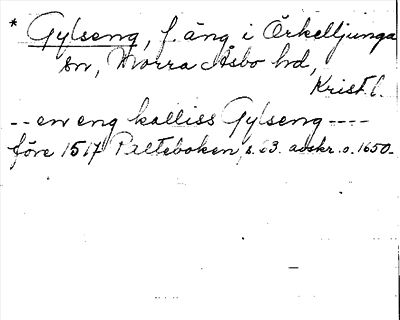 * Gylseng, f. äng i Örkelljunga
sn, Norra Åsbo hd,
Krist. l.
-- en eng kalliss Gylseng ----
före 1517 Palteboken, s. 23. avskr. o. 1650.